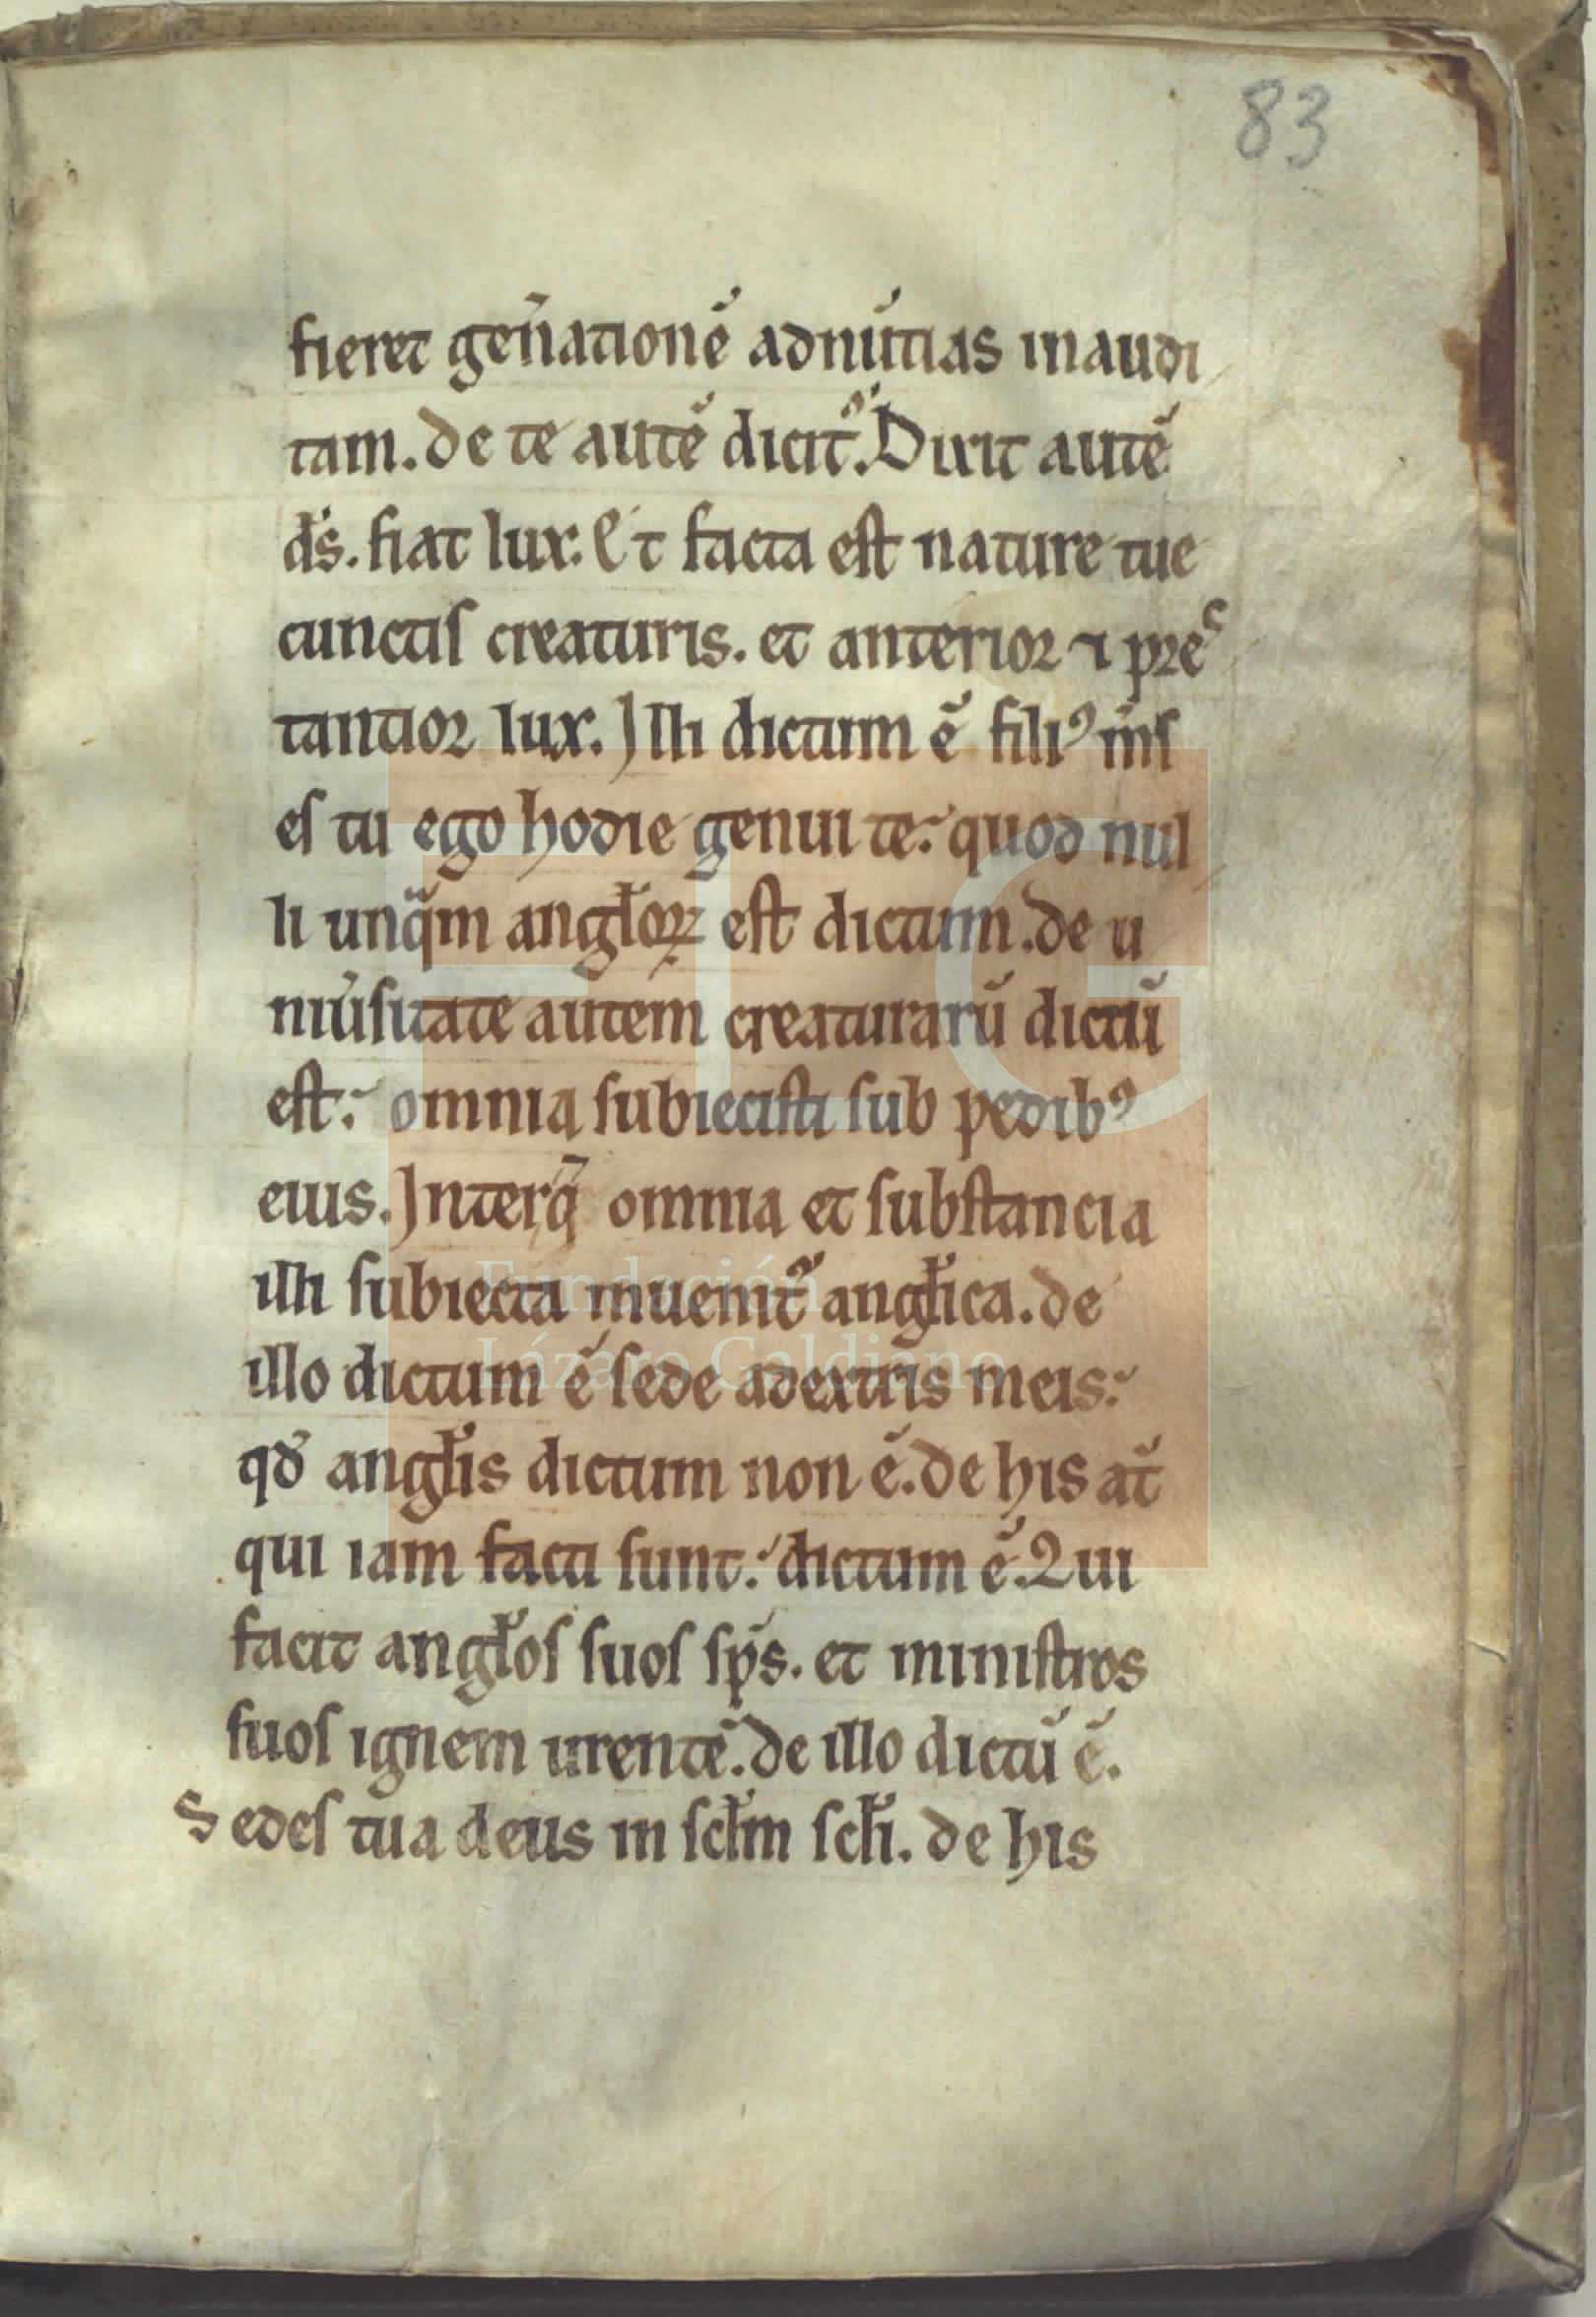 83
fieret gen̄atione᷒ adnū́tias inaudi
tam. de te autē dicit᷑. Dixit autē
d̄s. fiat lux. Et facta est nature tue
cunctis creaturis. et anterior ⁊ preˢ
tantior lux. Illi dictum ē filiꝰ m̄s
es tu ego hodie genui te. quod nul
li unqᵃm angl̄oꝝ est dictum. de u
niūsitate autem creaturarū dictū
est. omnia subiecisti sub pedibꝰ
eius. Interq̄ omnia et substancia
illi subiecta inuenit᷑ angl̄ica. de
illo dictum ē sede adextris meis.
qđ angl̄is dictum non ē. de his at̄
qui iam facti sunt. dictum ē. Qui
facit angl̄os suos sp̄s. et ministros
suos ignem urentē. de illo dictū ē.
Sedes tua deus in scl̄m scl̄i. de his
Fundación
Lázaro Galdiano